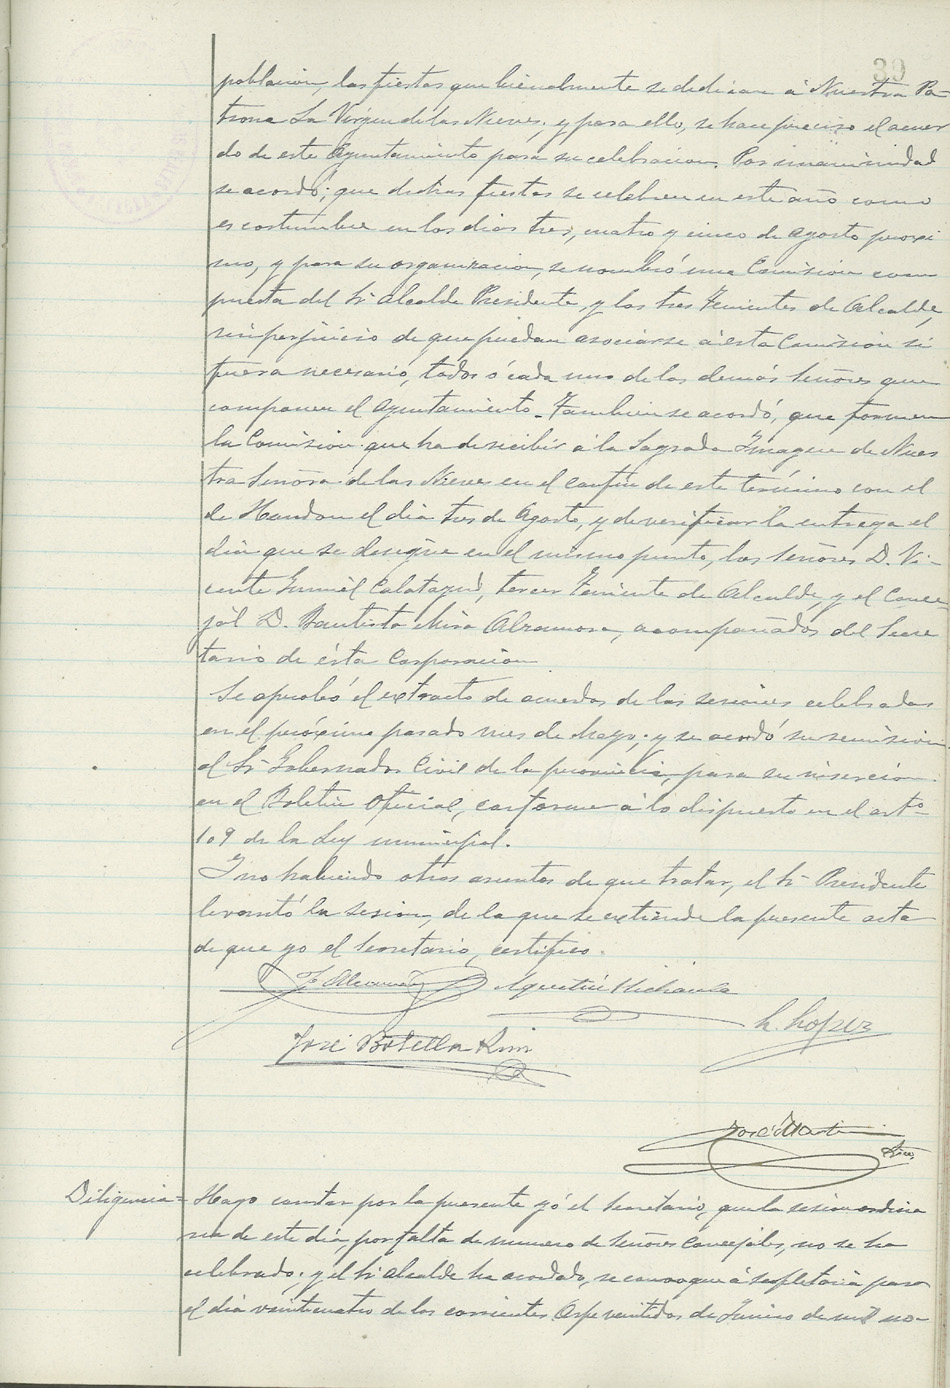 39
poblacion, las fiestas que bienalmente se dedican á Nuestra Pa-
trona La Virgen de las Nieves, y para ello, se hace preciso el acuer
do de este Ayuntamiento para su celebracion. Por unanimidad
se acordó; que dichas fiestas se celebren en este año como
es costumbre en los dias tres, cuatro y cinco de Agosto proxi
mo, y para su organizacion, se nombró una Comision com
puesta del Sr. Alcalde Presidente, y los tres Tenientes de Alcalde,
sin perjuicio de que puedan asociarse á esta Comision si
fuera necesario, todos ó cada uno de los demás Señores que
componen el Ayuntamiento. Tambien se acordó, que formen
la Comision que ha de recibir á la Sagrada Imagen de Nues
tra Señora de las Nieves en el confin de este término con el
de Hondon el dia tres de Agosto, y de verificar la entrega el
dia que se designe en el mismo punto, los Señores D. Vi-
cente Gumiel Calatayud, tercer Teniente de Alcalde, y el Conce
jal D. Bautista Mira, acompañados del Secre
tario de ésta Corporacion
Se aprobó el extracto de acuerdos de las sesiones celebradas
en el próximo pasado mes de Mayo; y se acordó su remision
al Sr. Gobernador Civil de la provincia, para su insercion
en el Boletin Oficial, conforme á lo dispuesto en el arto
109 de la Ley municipal.
Y no habiendo otros asuntos de que tratar, el Sr. Presidente
levantó la sesion, de la que se extiende la presente acta
de que yo el Secretario, certifico.
Agustin
H. Lopez
José Botella
José Martin
Diligencia = Hago constar por la presente yó el Secretario, que la sesion ordina
ria de este dia, por falta de numero de Señores Concejales, no se ha
celebrado: y el Sr. Alcalde ha acordado, se convoque á supletoria para
el dia veinticuatro de los corrientes Aspe veintidos de Junio de mil no-